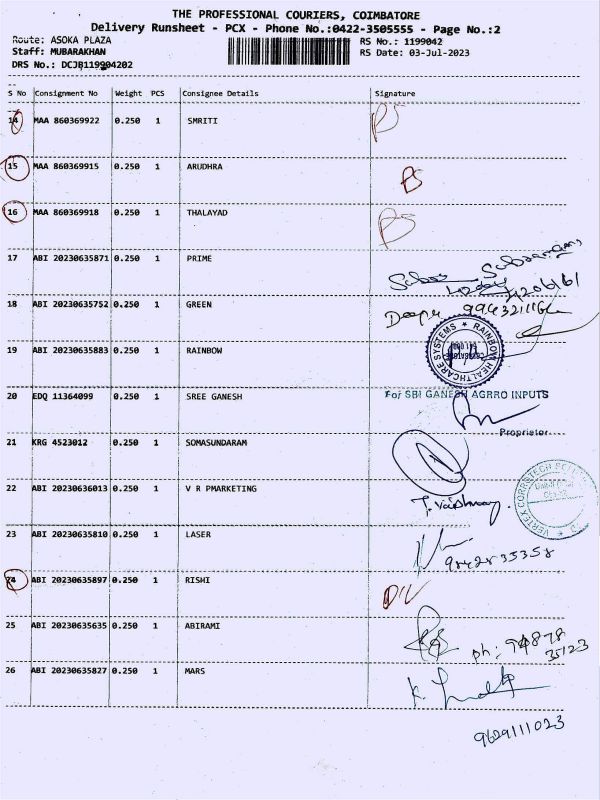 THE PROFESSIONAL COURIERS, COIMBATORE
Delivery Runsheet - PCX - Phone No.:0422-3505555 - Page No.:2
Route: ASOKA PLAZA RS No.: 1199042
Staff: MUBARAKHAN RS Date: 03-Jul-2023
DRS No.: DCJB119904202
S No Consignment No Weight PCS Consignee Details Signature
14 MAA 860369922 0.250 1 SMRITI
15 MAA 860369915 0.250 1 ARUDHRA
16 MAA 860369918 0.250 1 THALAYAD
17 ABI 20230635871 0.250 1 PRIME
18 ABI 20230635752 0.250 1 GREEN Deepa
19 ABI 20230635883 0.250 1 RAINBOW RAINBOW HEALTHCARE SYSTEMS
20 EDQ 11364099 0.250 1 SREE GANESH For SBI GANESH AGRRO INPUTS
Proprietor
21 KRG 4523012 0.250 1 SOMASUNDARAM
22 ABI 20230636013 0.250 1 V R PMARKETING
23 ABI 20230635810 0.250 1 LASER
9842835358
24 ABI 20230635897 0.250 1 RISHI
25 ABI 20230635635 0.250 1 ABIRAMI
ph: 94878
35123
26 ABI 20230635827 0.250 1 MARS
9629111023